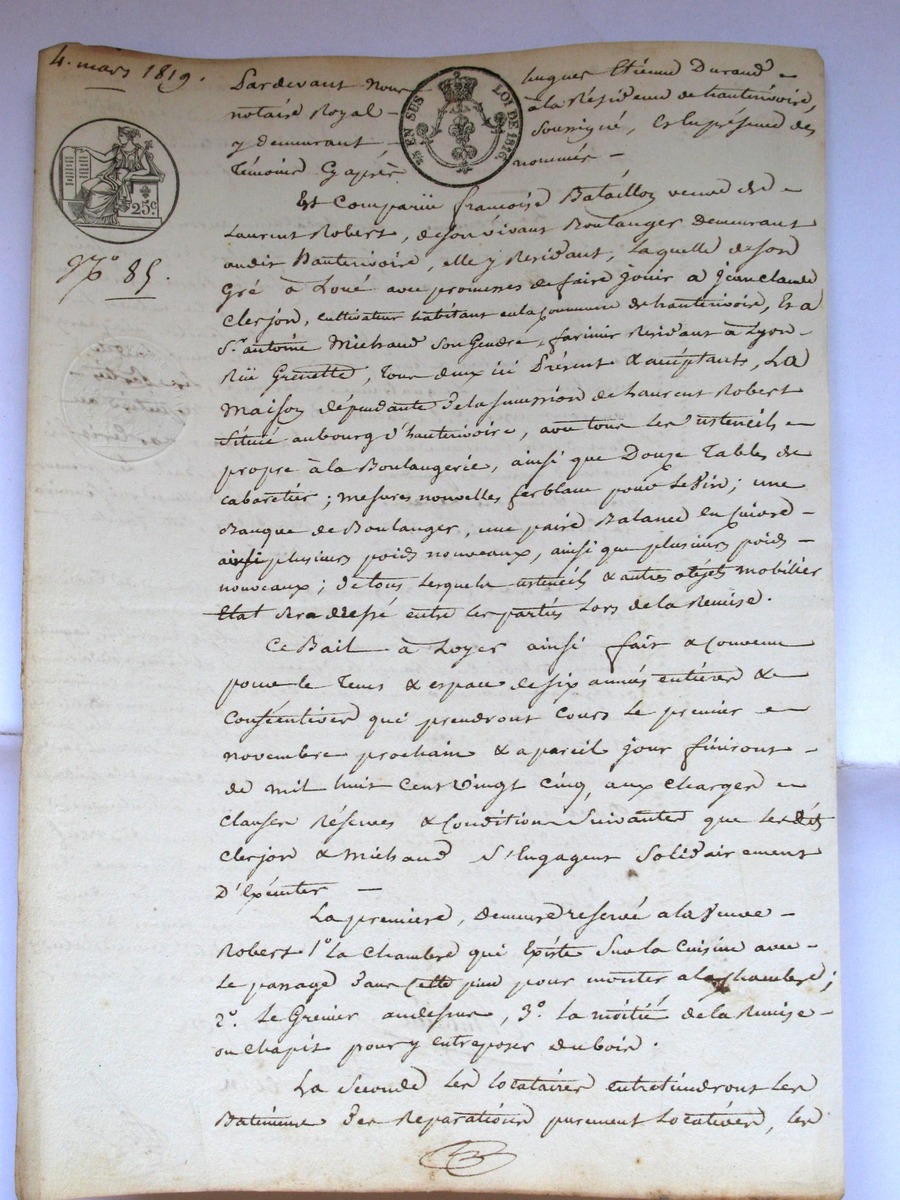 4. mars 1819.
Pardevant Nous hugues Etienne Durand
notaire Royal à la Résidence de hauterivoire,
y demeurant soussigné, Et En présence des
Témoins Cy après nommés
EN SUS LOI DE 1816
25c.
N.º 85.
Est Comparüe françoise Bataillon veuve de
Laurent Robert, de son vivant Boulanger Demeurant
audit hauterivoire, elle y Résidant, Laquelle de son
Gré à Loué avec promesses de faire jouir a jean claude
Clerjon, cultivateur habitant en la Commune de hauterivoire, Et a
Sr. antoine Michaud son Gendre, farinier Résidant à Lyon
Rüe Grenette, Tous deux ici Présent & acceptants, La
Maison dépendante de la succession de Laurent Robert
Situé au bourg d'hauterivoire, avec tous les Ustencils
propre à la Boulangerie, ainsi que Douze Tables de
cabaretier; mesures nouvelles ferblanc pour le Vin; une
Banque de Boulanger, une paire Balance en Cuivre
ainsi plusieurs poids nouveaux, ainsi que plusieurs poids
nouveaux; de tous lesquels ustencils & autres objets mobilier
Etat sera dressé entre les parties Lors de la Remise.
Ce Bail à Loyer ainsi fait & Convenu
pour le Tems & espace de six années entières &
Consécutives qui prendront Cours le premier
novembre prochain & a pareil jour finiront
de mil huit Cent Vingt Cinq, aux Charges
Clauses Réserves & Conditions suivantes que Lesdits
Clerjon & Michaud S'Engagent Solidairement
D'Exécuter
La première, demeure reservé a la Veuve
Robert 1º La Chambre qui Existe Sur la Cuisine avec
Le passage dans Cette pour monter a la Chambre;
2º. Le Grenier au dessus, 3º. La moitié de la Remise
ou Chapit pour y entreposer du bois.
La Seconde Les Locataires entretiendront Les
Batiments des Reparations purement Locatives, les